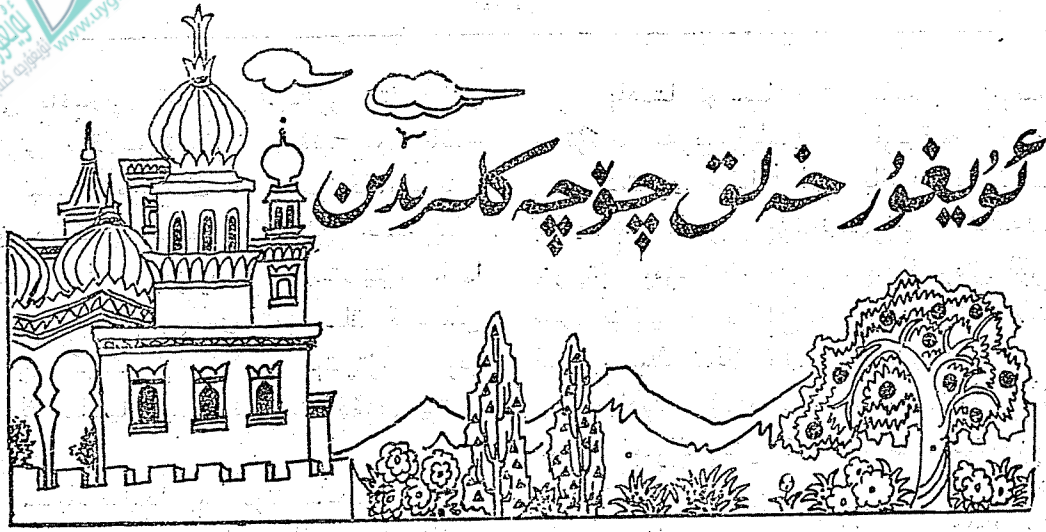 ئۇيغۇر خەلق چۆچەكلىرىدىن